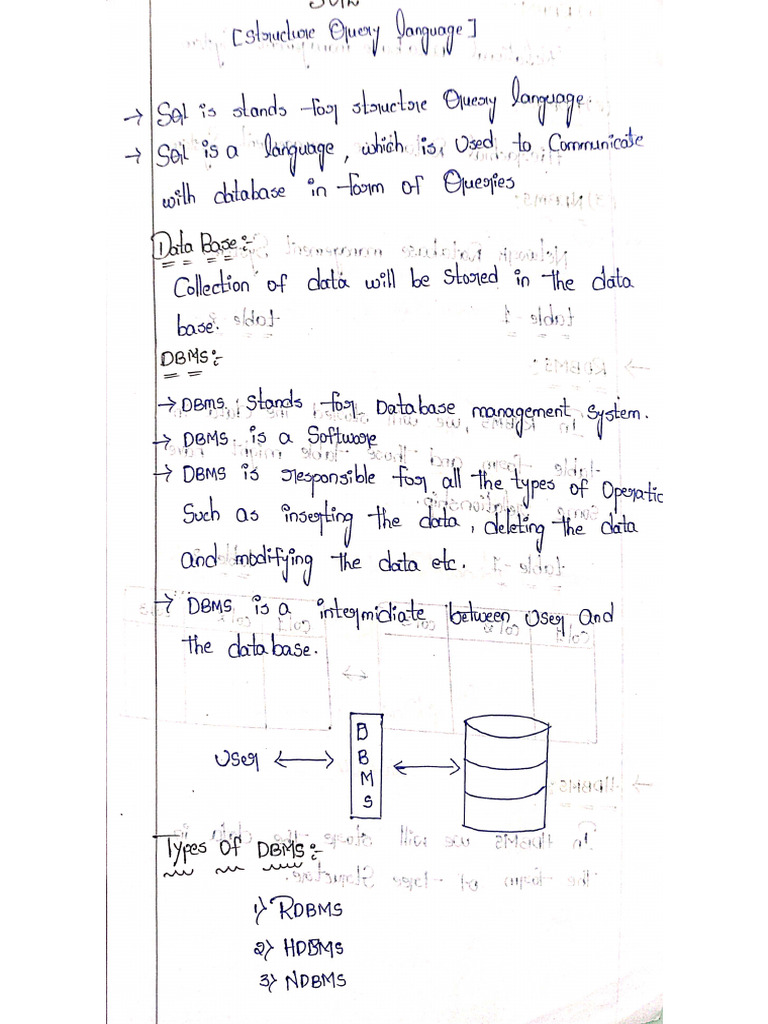 [Structure Query language]
→ Sql is stands for structure Query language.
→ Sql is a language, which is used to Communicate
with database in form of Queries
Data Base:-
Collection of data will be stored in the data
base.
DBMS:-
→ DBMS stands for Database management System.
→ DBMS is a Software
→ DBMS is responsible for all the types of Operatio
Such as inserting the data, deleting the data
and modifying the data etc.
→ DBMS is a intermidiate between user and
the database.
User
D
B
M
S
Types Of DBMS:-
1) RDBMS
2) HDBMS
3) NDBMS